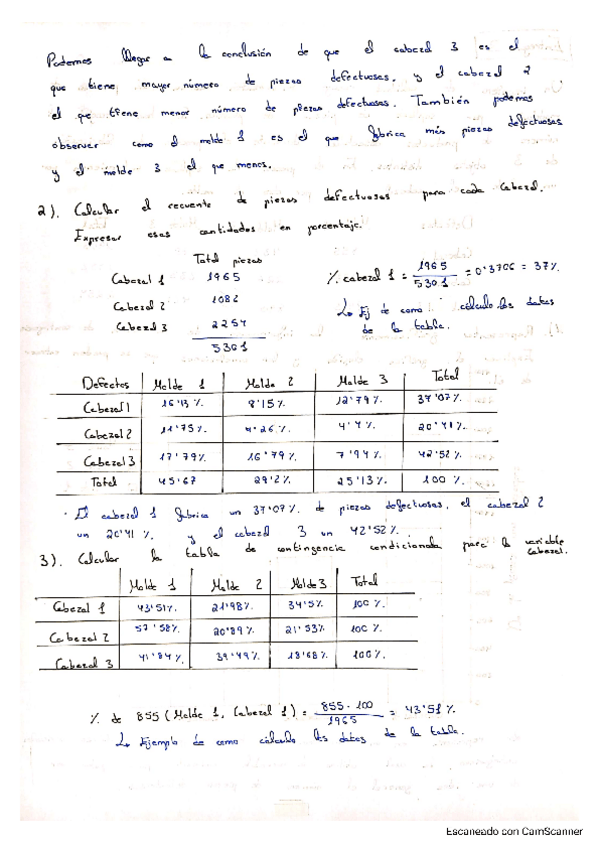 Podemos llegar a la conclusión de que el cabezal 3 es el
que tiene mayor número de piezas defectuosas, y el cabezal 2
el qe tiene menor número de piezas defectuosas. También podemos
observar como el molde 1 es el que fabrica más piezas defectuosas
y el molde 3 el que menos.
2). Calcular el recuento de piezas defectuosas para cada cabezal.
Expresar esas cantidades en porcentaje.
Total piezas
Cabezal 1 1965
Cabezal 2 1082
Cabezal 3 2254
5301
% cabezal 1 = 1965 / 5301 = 0'3706 = 37%.
Ej de como cálculo los datos
de la tabla.
Defectos Molde 1 Molde 2 Molde 3 Total
Cabezal 1 16'13 % 8'15 % 12'79 % 37'07 %
Cabezal 2 11'75 % 4'26 % 4'4 % 20'41 %
Cabezal 3 17'79 % 16'79 % 7'94 % 42'52 %
Total 45'67 29'2 % 25'13 % 100 %
El cabezal 1 fabrica un 37'07 % de piezas defectuosas, el cabezal 2
un 20'41 % y el cabezal 3 un 42'52 %.
3). Calcular la tabla de contingencia condicionada para la variable
cabezal.
Molde 1 Molde 2 Molde 3 Total
Cabezal 1 43'51%. 21'98%. 34'5% 100 %.
Cabezal 2 57'58%. 20'89 % 21'53% 100 %.
Cabezal 3 41'84 % 39'49%. 18'68% 100%.
% de 855 (Molde 1, Cabezal 1) = 855 · 100 / 1965 = 43'51 %.
Ejemplo de como cálculo los datos de la tabla.
Escaneado con CamScanner